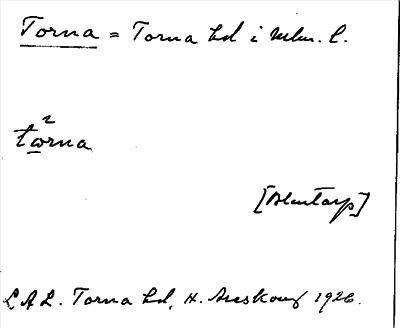 Torna = Torna hd i Mlm. l.
2
tωrna
[Blentarp]
L.A.L. Torna hd, H. Areskoug 1926.